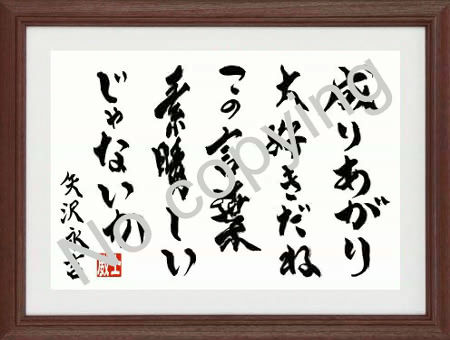 成りあがり
大好きだね
この言葉
素晴らしい
じゃないか
矢沢永吉
No copying